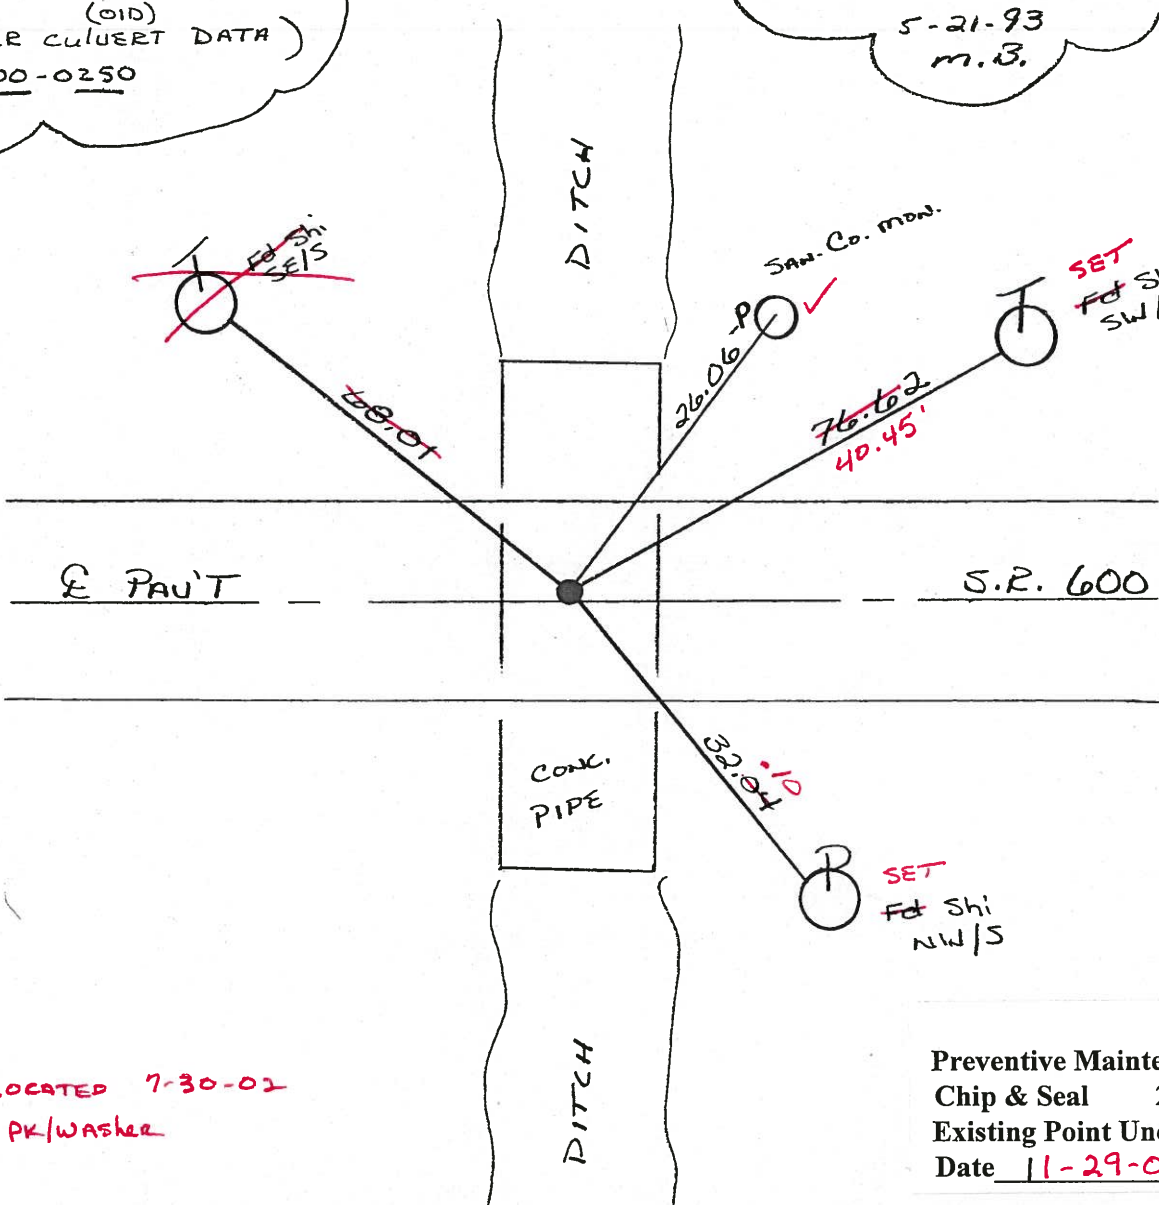 (OID)
R CULVERT DATA)
00-0250
5-21-93
M.B.
DITCH
T
Fd Shi
SE/S
SAN. CO. MON.
SET
T
Fd S
SW/
P
26.06
68.01
76.62
40.45'
℄ PAV'T
S.R. 600
CONC.
PIPE
32.04
.10
P
SET
Fd Shi
NW/S
DITCH
LOCATED 7-30-02
PK/WASHER
Preventive Mainte
Chip & Seal
Existing Point Und
Date 11-29-0